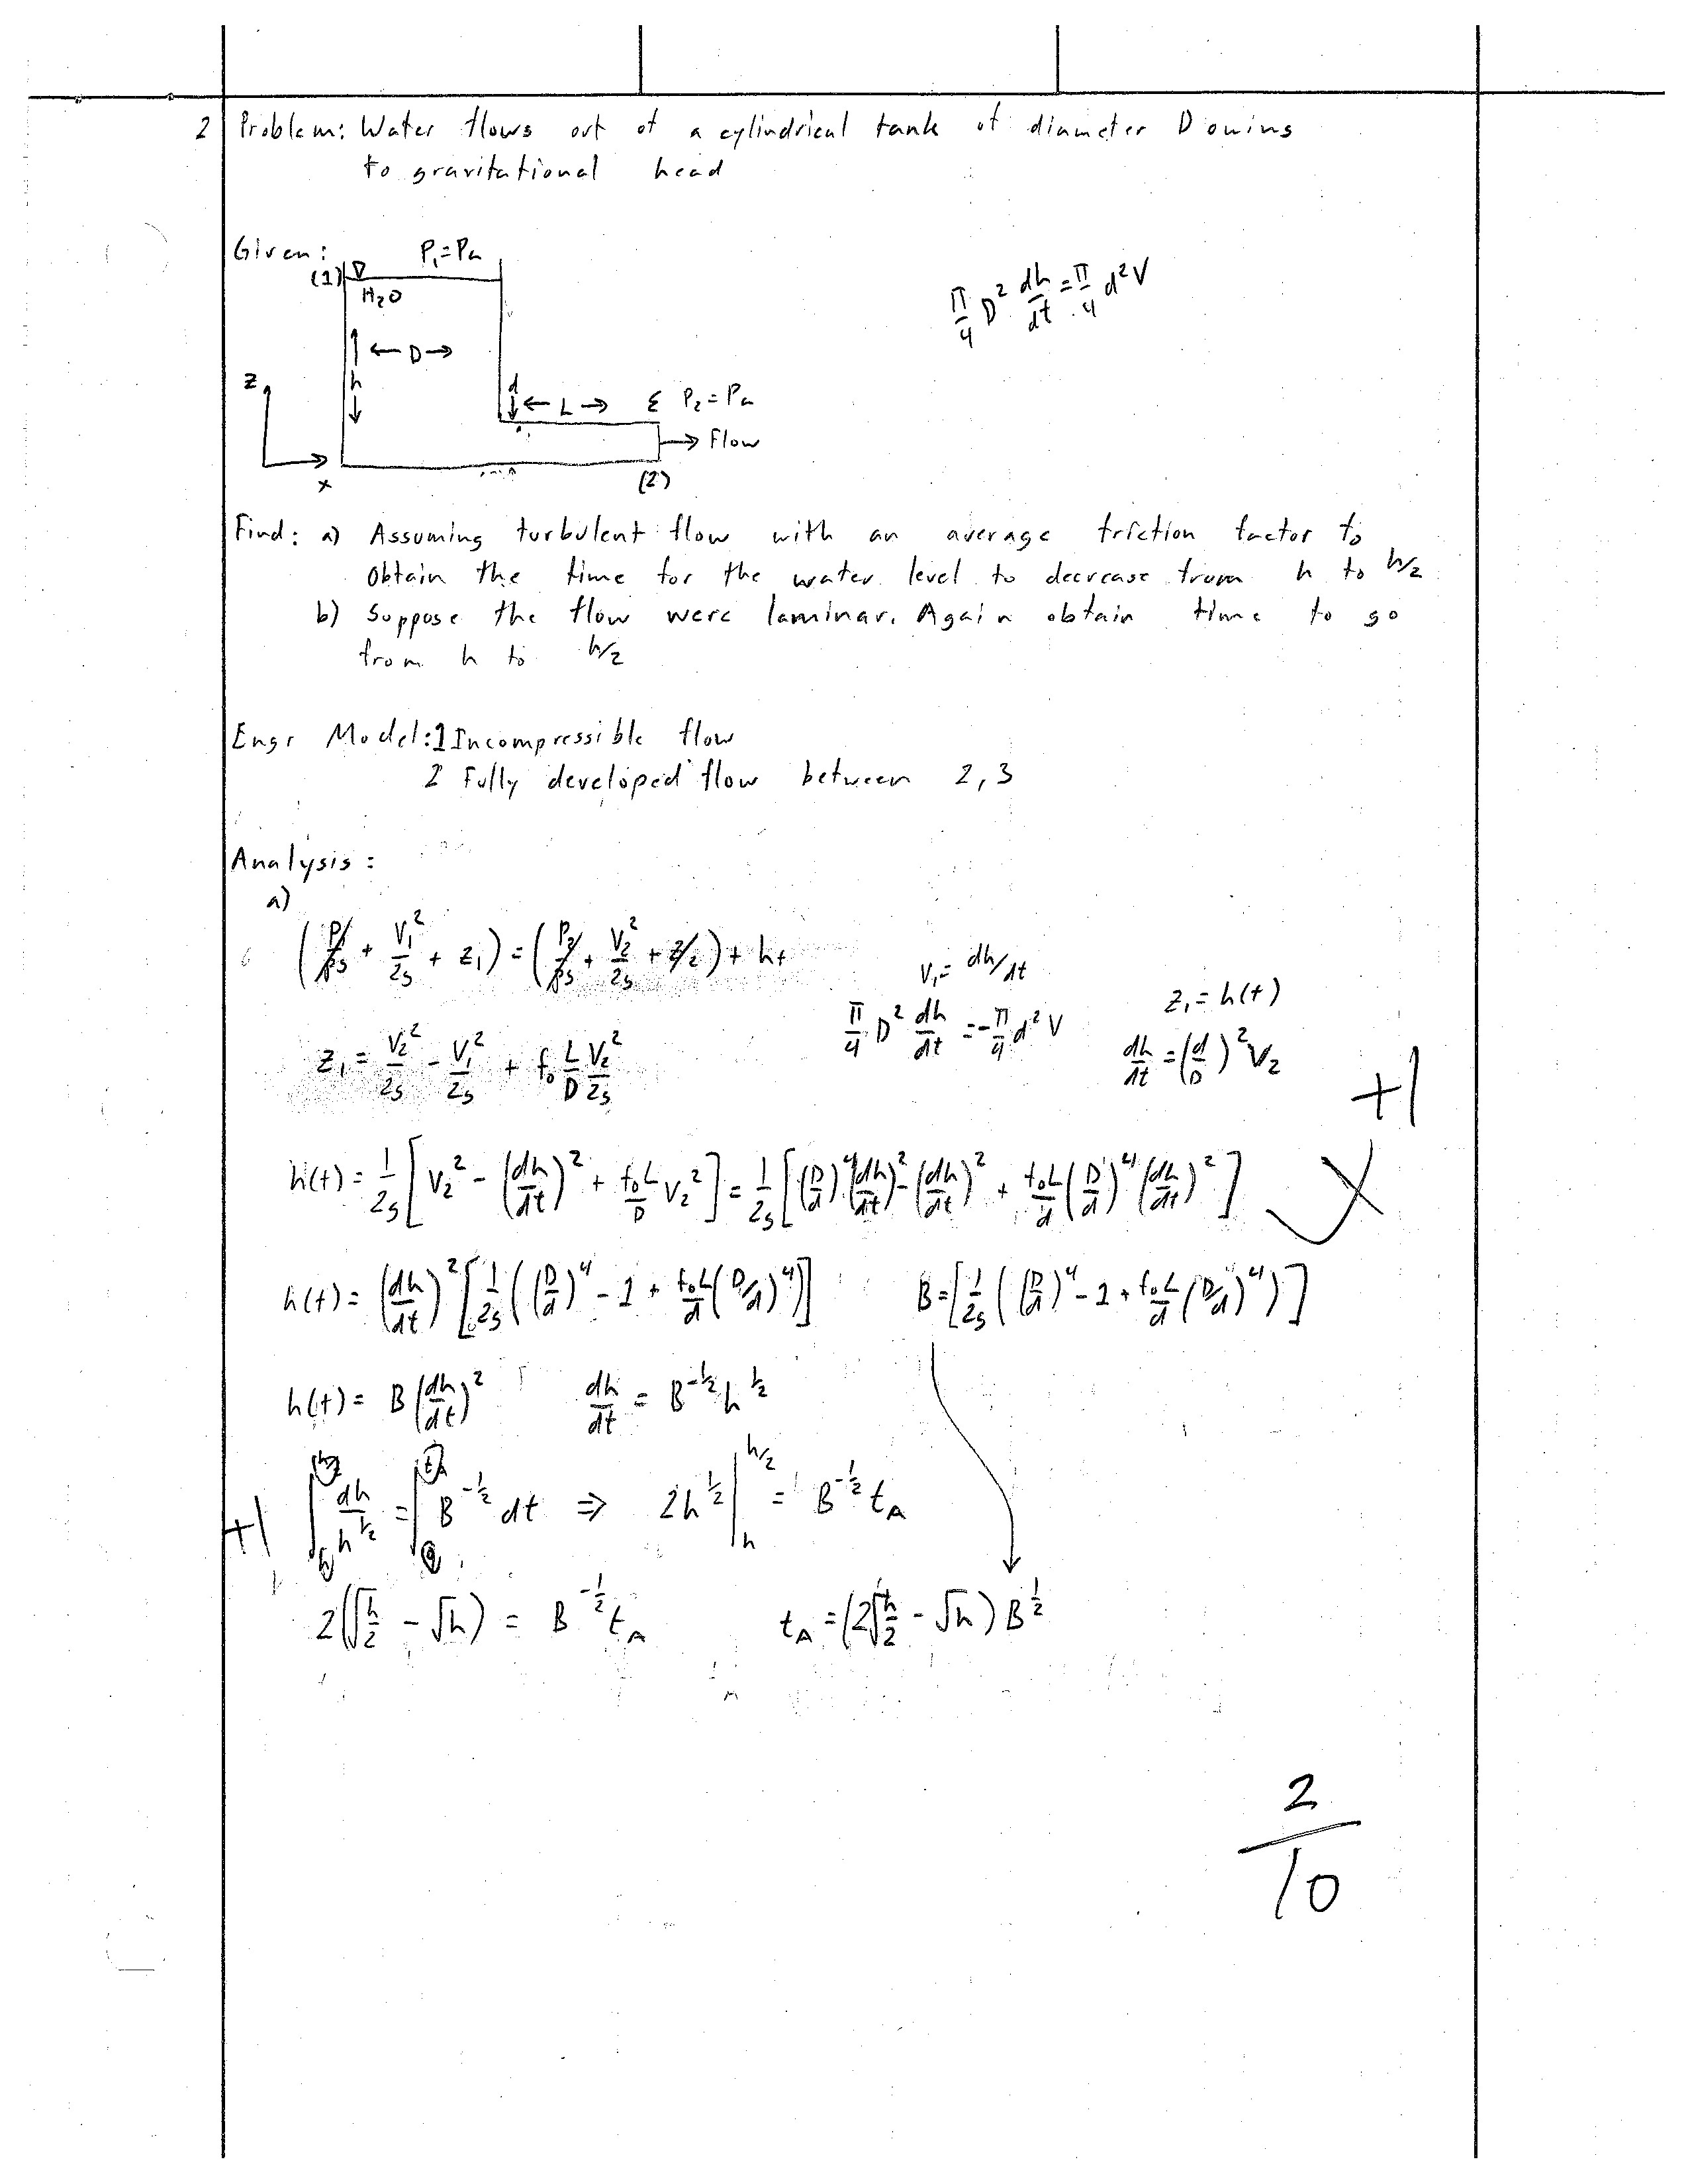 2 Problem: Water flows out of a cylindrical tank of diameter D owing
to gravitational head
Given: P₁=Pa
(1) ∇
H₂O
π/4 D² dh/dt = π/4 d²V
← D →
z h d ← L → ε P₂=Pa
→ Flow
x (2)
Find: a) Assuming turbulent flow with an average friction factor fo
Obtain the time for the water level to decrease from h to h/2
b) Suppose the flow were laminar. Again obtain time to go
from h to h/2
Engr Model: 1 Incompressible flow
2 Fully developed flow between 2,3
Analysis:
a)
(P₁/ρg + V₁²/2g + z₁) = (P₂/ρg + V₂²/2g + z₂) + hf
V₁ = dh/dt
z₁ = h(t)
z₁ = V₂²/2g - V₁²/2g + f₀ L/D V₂²/2g
π/4 D² dh/dt = -π/4 d² V
dh/dt = (d/D)² V₂
+1
h(t) = 1/2g [V₂² - (dh/dt)² + f₀L/D V₂²] = 1/2g [(D/d)⁴(dh/dt)² - (dh/dt)² + f₀L/d (D/d)⁴ (dh/dt)²]
h(t) = (dh/dt)² [1/2g ((D/d)⁴ - 1 + f₀L/d (D/d)⁴)] B = [1/2g ((D/d)⁴ - 1 + f₀L/d (D/d)⁴)]
h(t) = B(dh/dt)² dh/dt = B^-½ h^½
+1 ∫_h^h/2 dh/h^½ = ∫_0^tA B^-½ dt ⇒ 2h^½ |_h^h/2 = B^-½ tA
2(√h/2 - √h) = B^-½ tA tA = (2√h/2 - √h) B^½
2/10